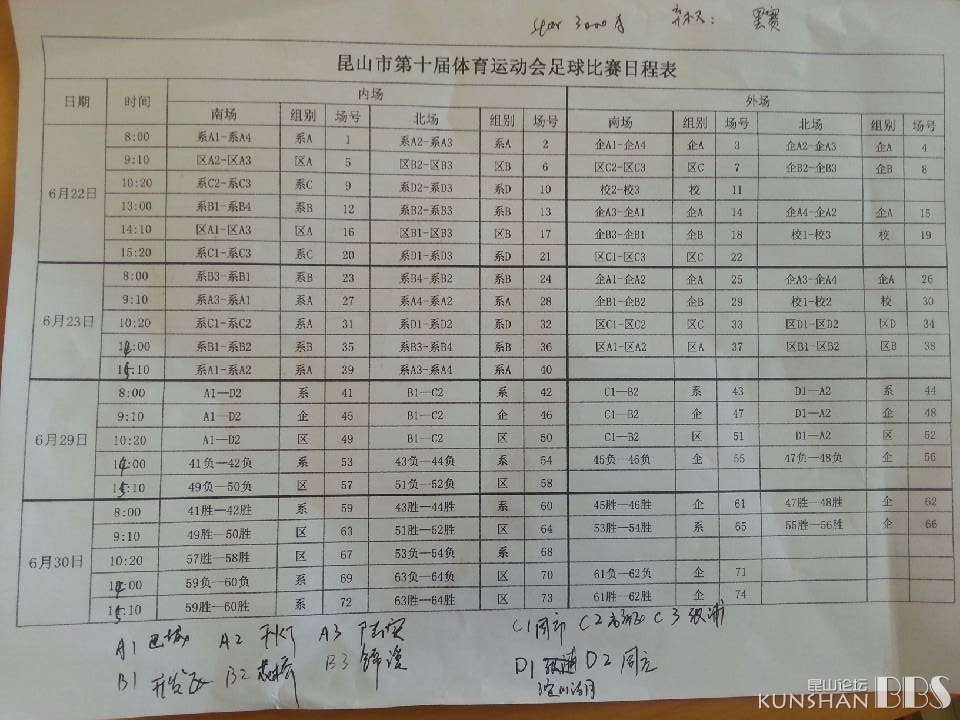 弃权: 罢赛
昆山市第十届体育运动会足球比赛日程表
日期 时间 内场 外场
南场 组别 场号 北场 组别 场号 南场 组别 场号 北场 组别 场号
6月22日
8:00 系A1-系A4 系A 1 系A2-系A3 系A 2 企A1-企A4 企A 3 企A2-企A3 企A 4
9:10 区A2-区A3 区A 5 区B2-区B3 区B 6 区C2-区C3 区C 7 企B2-企B3 企B 8
10:20 系C2-系C3 系C 9 系D2-系D3 系D 10 校2-校3 校 11
13:00 系B1-系B4 系B 12 系B2-系B3 系B 13 企A3-企A1 企A 14 企A4-企A2 企A 15
14:10 区A1-区A3 区A 16 区B1-区B3 区B 17 企B3-企B1 企B 18 校1-校3 校 19
15:20 系C1-系C3 系C 20 系D1-系D3 系D 21 区C1-区C3 区C 22
6月23日
8:00 系B3-系B1 系B 23 系B4-系B2 系B 24 企A1-企A2 企A 25 企A3-企A4 企A 26
9:10 系A3-系A1 系A 27 系A4-系A2 系A 28 企B1-企B2 企B 29 校1-校2 校 30
10:20 系C1-系C2 系A 31 系D1-系D2 系D 32 区C1-区C2 区C 33 区D1-区D2 区D 34
14:00 系B1-系B2 系B 35 系B3-系B4 系B 36 区A1-区A2 区A 37 区B1-区B2 区B 38
15:10 系A1-系A2 系A 39 系A3-系A4 系A 40
6月29日
8:00 A1—D2 系 41 B1—C2 系 42 C1—B2 系 43 D1—A2 系 44
9:10 A1—D2 企 45 B1—C2 企 46 C1—B2 企 47 D1—A2 企 48
10:20 A1—D2 区 49 B1—C2 区 50 C1—B2 区 51 D1—A2 区 52
14:00 41负—42负 系 53 43负—44负 系 54 45负—46负 企 55 47负—48负 企 56
15:10 49负—50负 区 57 51负—52负 区 58
6月30日
8:00 41胜—42胜 系 59 43胜—44胜 系 60 45胜—46胜 企 61 47胜—48胜 企 62
9:10 49胜—50胜 区 63 51胜—52胜 区 64 53胜—54胜 系 65 55胜—56胜 企 66
10:20 57胜—58胜 区 67 53负—54负 系 68
14:00 59负—60负 系 69 63负—64负 区 70 61负—62负 企 71
15:10 59胜—60胜 系 72 63胜—64胜 区 73 61胜—62胜 企 74
A1 巴城 A2 A3 陆家 C1 周市 C2 C3 张浦
B1 开发区 B2 B3 锦溪 D1 D2 周庄
昆山论坛
KUNSHAN BBS